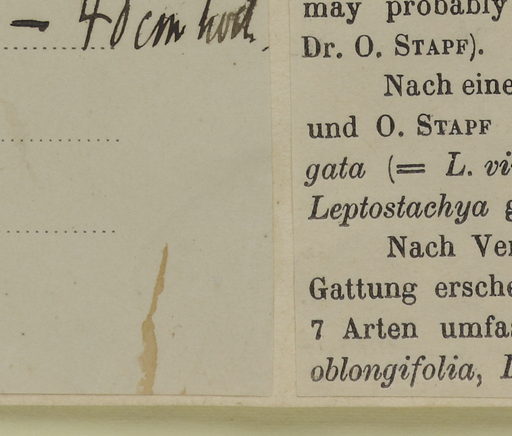 – 40 cm hoch.
may probably
Dr. O. STAPF).
Nach eine
und O. STAPF
gata (= L. vi-
Leptostachya g
Nach Ver
Gattung ersche
7 Arten umfas
oblongifolia, L